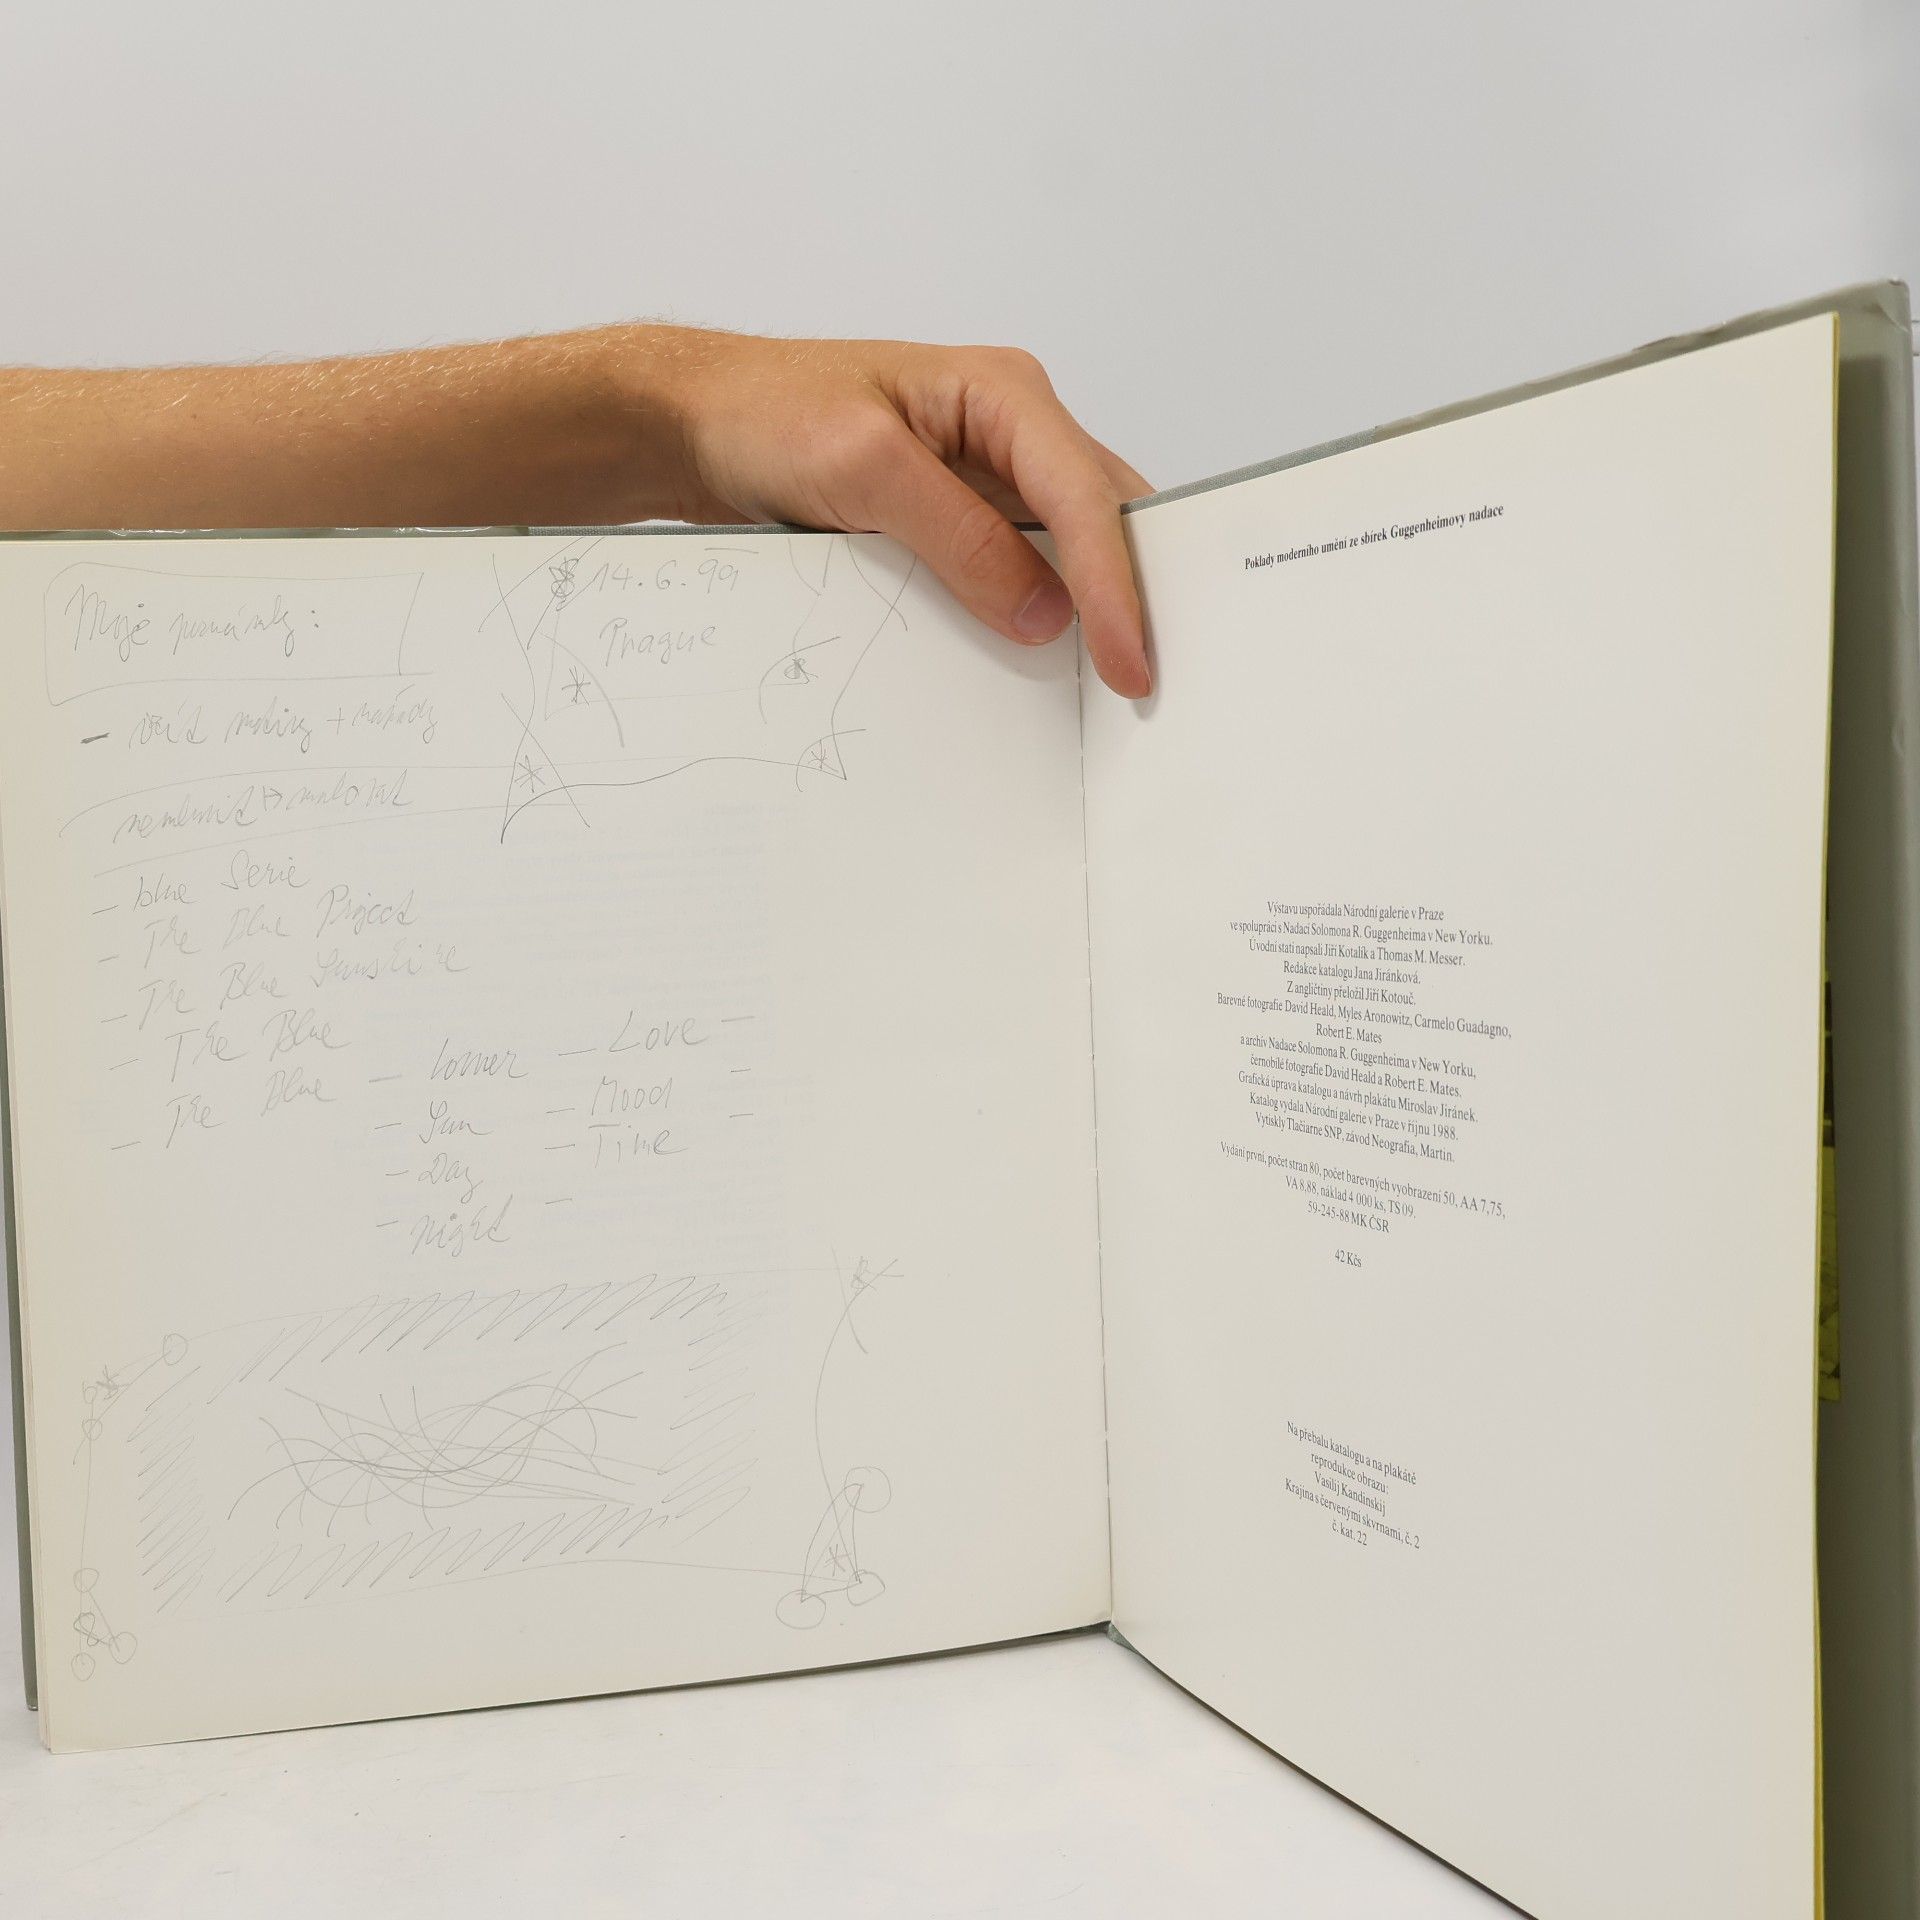 Moje poznámky:
14.6.99
Prague
+ nápady
malovat
- blue Serie
- The Blue Project
- The Blue Sunshine
- The Blue
- The Blue
- Corner
- Sun
- Day
- Night
- Love -
- Mood -
- Time -
Poklady moderního umění ze sbírek Guggenheimovy nadace
Výstavu uspořádala Národní galerie v Praze
ve spolupráci s Nadací Solomona R. Guggenheima v New Yorku.
Úvodní stati napsali Jiří Kotalík a Thomas M. Messer.
Redakce katalogu Jana Jiránková.
Z angličtiny přeložil Jiří Kotouč.
Barevné fotografie David Heald, Myles Aronowitz, Carmelo Guadagno,
Robert E. Mates
a archív Nadace Solomona R. Guggenheima v New Yorku,
černobílé fotografie David Heald a Robert E. Mates.
Grafická úprava katalogu a návrh plakátu Miroslav Jiránek.
Katalog vydala Národní galerie v Praze v říjnu 1988.
Vytiskly Tlačiarne SNP, závod Neografia, Martin.
Vydání první, počet stran 80, počet barevných vyobrazení 50, AA 7,75,
VA 8,88, náklad 4 000 ks, TS 09.
59-245-88 MK ČSR
42 Kčs
Na přebalu katalogu a na plakátě
reprodukce obrazu:
Vasilij Kandinskij
Krajina s červenými skvrnami, č. 2
č. kat. 22